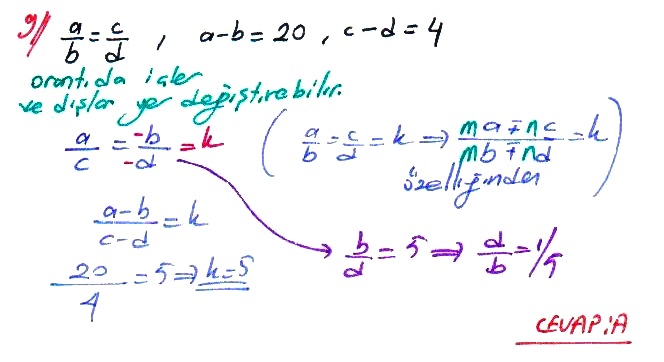 9) a/b = c/d , a-b = 20 , c-d = 4
orantıda içler
ve dışlar yer değiştirebilir.
a/c = -b/-d = k ( a/b = c/d = k ⇒ (ma∓nc)/(mb∓nd) = k
özelliğinden )
(a-b)/(c-d) = k
b/d = 5 ⇒ d/b = 1/5
20/4 = 5 ⇒ k=5
CEVAP:A